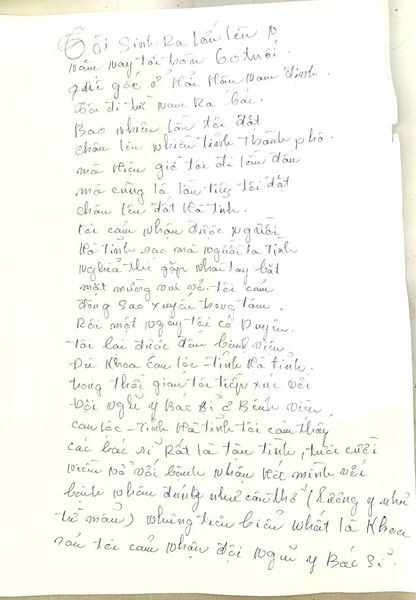 Tôi Sinh Ra lớn lên
Năm nay tôi hơn 60 tuổi.
quê gốc ở Hải Hậu Nam định.
Tôi đi từ Nam Ra Bắc.
Bao nhiên lần tôi đặt
chân lên nhiều tỉnh thành phố
mà Hiện giờ tôi đi lần đầu
mà cũng là lần tiếp tôi đặt
chân lên đất Hà tĩnh.
tôi cảm nhận được người
Hà tĩnh sao mà người ta tình
nghĩa thế gặp nhau tay bắt
mặt mừng vui vẻ. tôi cảm
động sao xuyến trong tâm.
Rồi một ngày tôi có Duyên.
tôi lại được đến bệnh viện
Đa Khoa Can lộc - tỉnh Hà tĩnh.
trong thời gian tôi tiếp xúc với
đội ngũ y Bác sĩ ở Bệnh viện
can lộc - tỉnh Hà tĩnh tôi cảm thấy
các bác sĩ Rất là tận tình, tươi cười
viền vẻ với bệnh nhân Hết mình với
bệnh nhân đúng như câu thơ (Lương y như
từ mẫu) nhưng tiêu biểu nhất là Khoa
sản tôi cảm nhận đội ngũ y Bác sĩ.